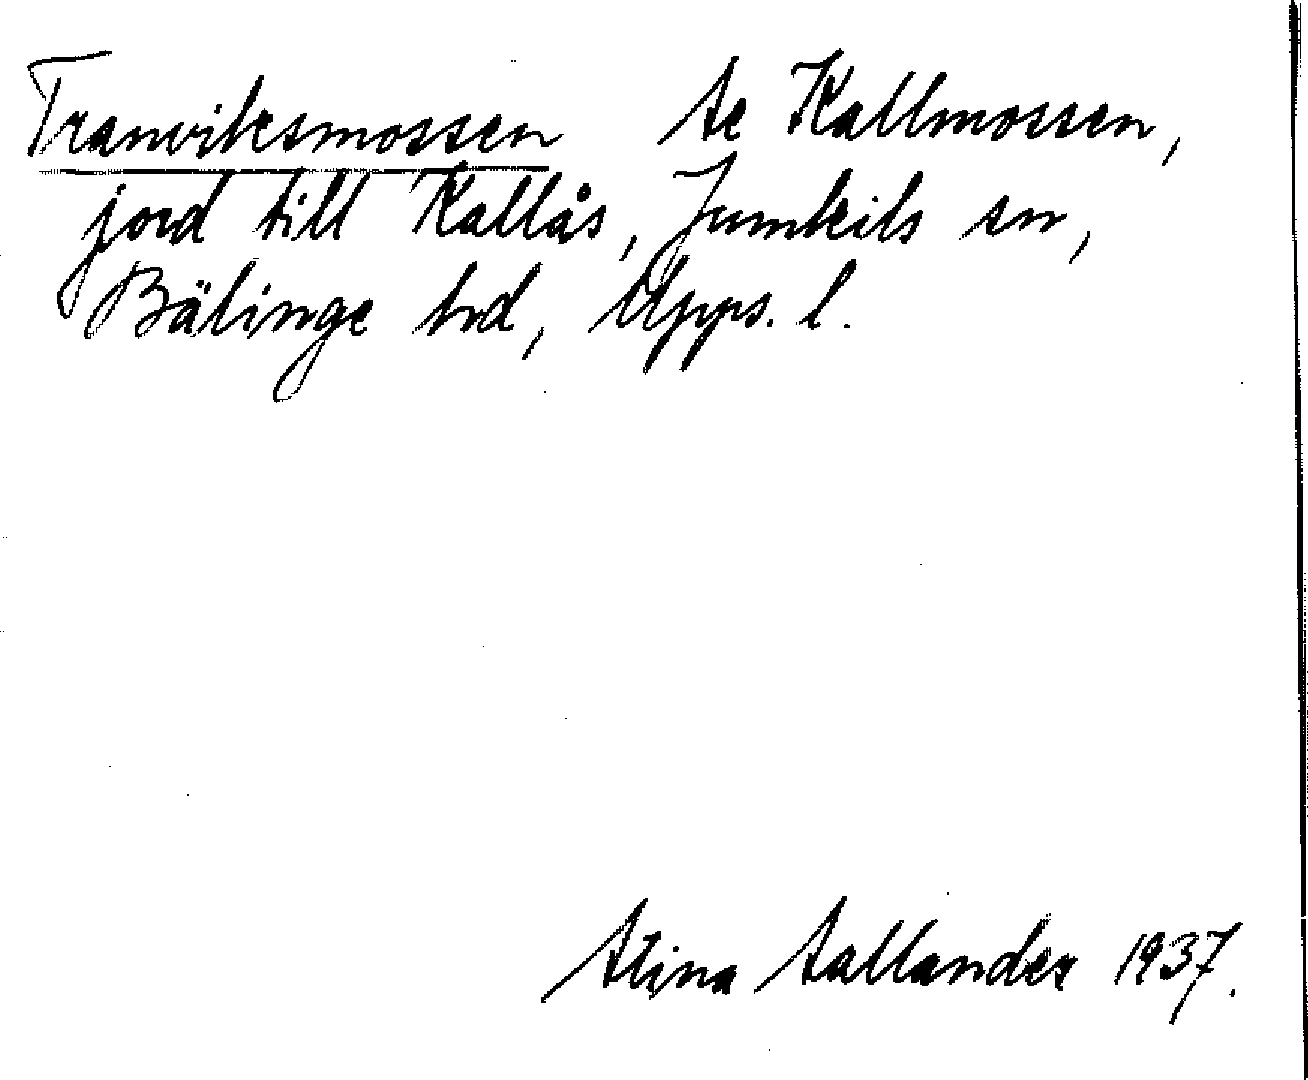 Tranviksmossen Se Kallmossen,
jord till Kallås, Jumkils sn,
Bälinge hd, Upps. l.
Stina Sallander 1937.